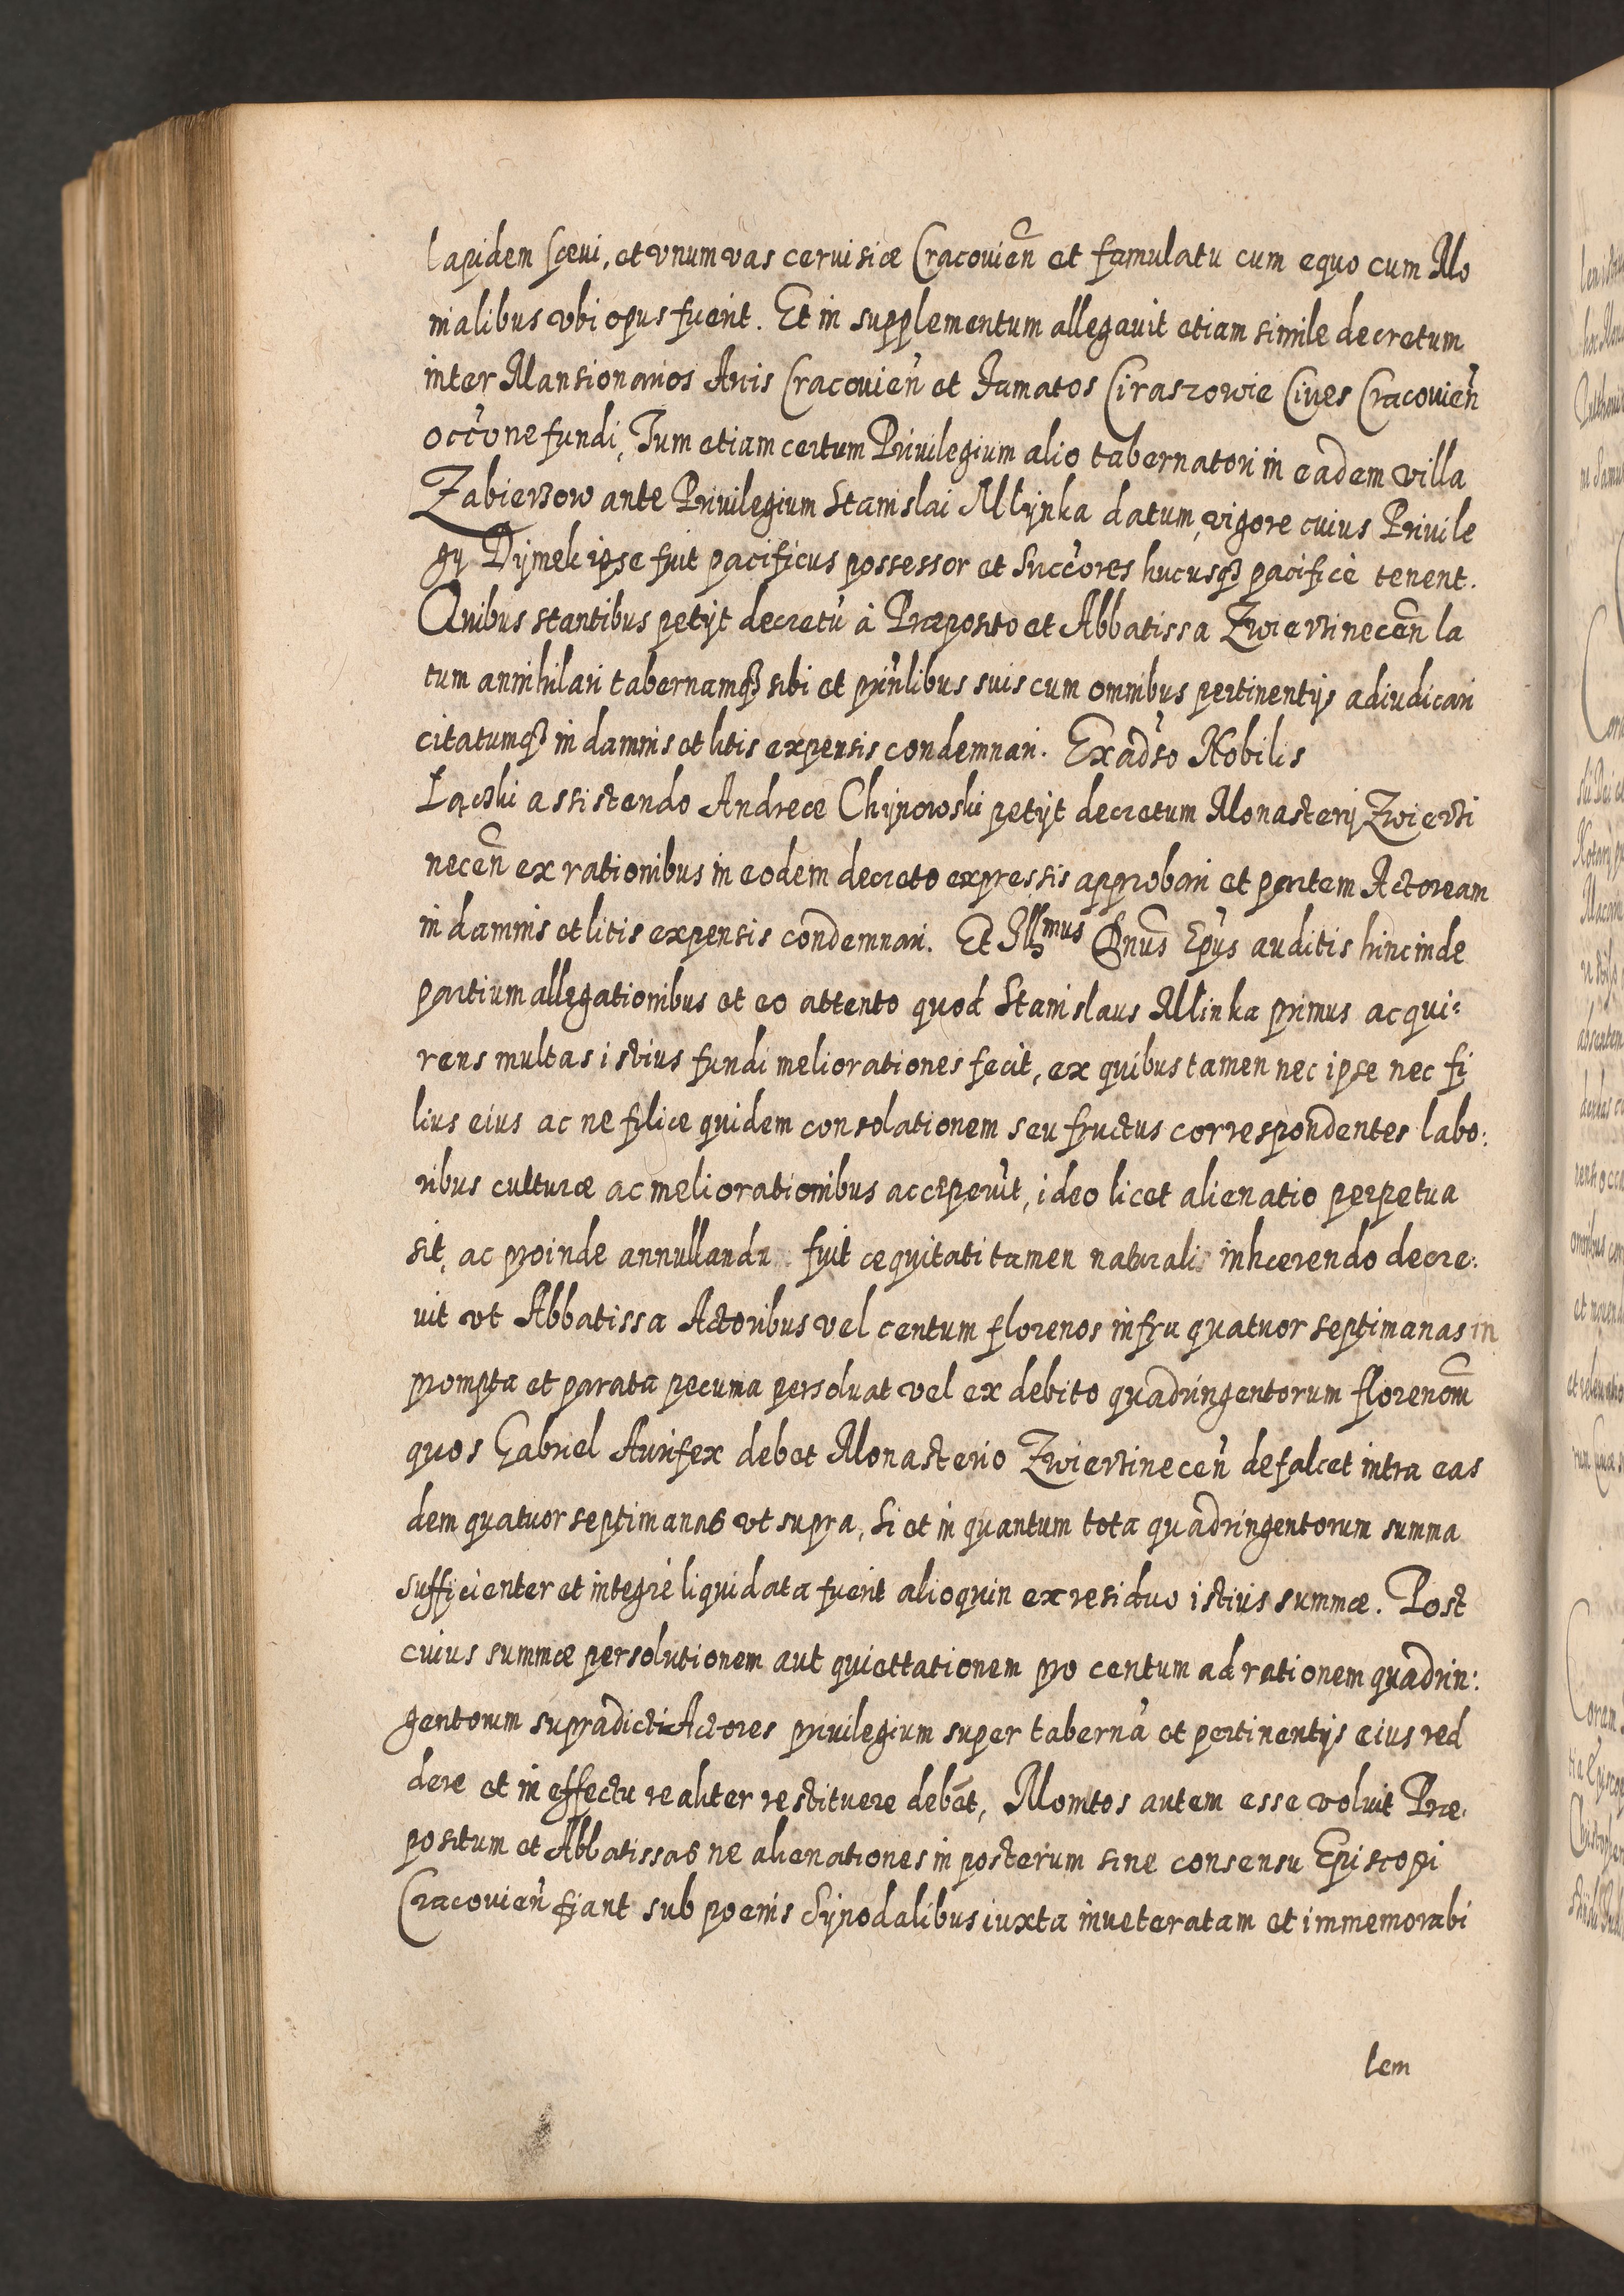 lapidem sæui, et vnum vas ceruisiæ Cracouien̄ et famulatu cum equo cum Mo
nialibus vbi opus fuerit. Et in supplementum allegauit etiam simile decretum
inter Mansionarios Arcis Cracouien̄ et Famatos Ciraszowie Ciues Cracouien̄
occōne fundi, Tum etiam certum Priuilegium alio tabernatori in eadem villa
Zabierzow ante Priuilegium Stanislai Mlÿnka datum, vigore cuius Priuile
gÿ Dÿmek ipse fuit pacificus possessor et Succōres hucusq₃ pacificè tenent.
Quibus stantibus petÿt decretū à Præposito et Abbatissa Zwierzinecen̄ la
tum annihilari tabernamq₃ sibi et prīnlibus suis cum omnibus pertinentÿs adiudicari
citatumq₃ in damnis et litis expensis condemnari. Ex adu̇so Nobilis
Łączki assistendo Andreæ Chÿnowski petÿt decretum Monasterÿ Zwierzi
necen̄ ex rationibus in eodem decreto expressis approbari et partem Actoream
in damnis et litis expensis condemnari. Et Illmus Dnūs Ep̄us auditis hinc inde
partium allegationibus et eo attento quod Stanislaus Mlinka primus acqui=
rens multas istius fundi meliorationes fecit, ex quibus tamen nec ipse nec fi
lius eius ac ne filiæ quidem consolationem seu fructus correspondentes labo:
ribus culturæ ac meliorationibus acceperūt, ideo licet alienatio perpetua
sit, ac proinde annullanda fuit æquitati tamen naturali inhærendo decre:
uit vt Abbatissa Actoribus vel centum florenos infra quatuor septimanas in
prompta et parata pecunia persoluat vel ex debito quadringentorum florenom̄
quos Gabriel Aurifex debet Monasterio Zwierzinecen̄ defalcet intra eas
dem quatuor septimanas vt supra, si et in quantum tota quadringentorum summa
sufficienter et integrè liquidata fuerit alioquin ex residuo istius summæ. Post
cuius summæ persolutionem aut quiettationem pro centum ad rationem quadrin:
gentorum supradicti Actores priuilegium super tabernā et pertinentÿs eius red
dere et in effectu realiter restituere debēt, Monitos autem esse voluit Præ:
positum et Abbatissas ne alienationes in posterum sine consensu Episcopi
Cracouien̄ fiant sub poenis Sÿnodalibus iuxta inueteratam et immemorabi
lem